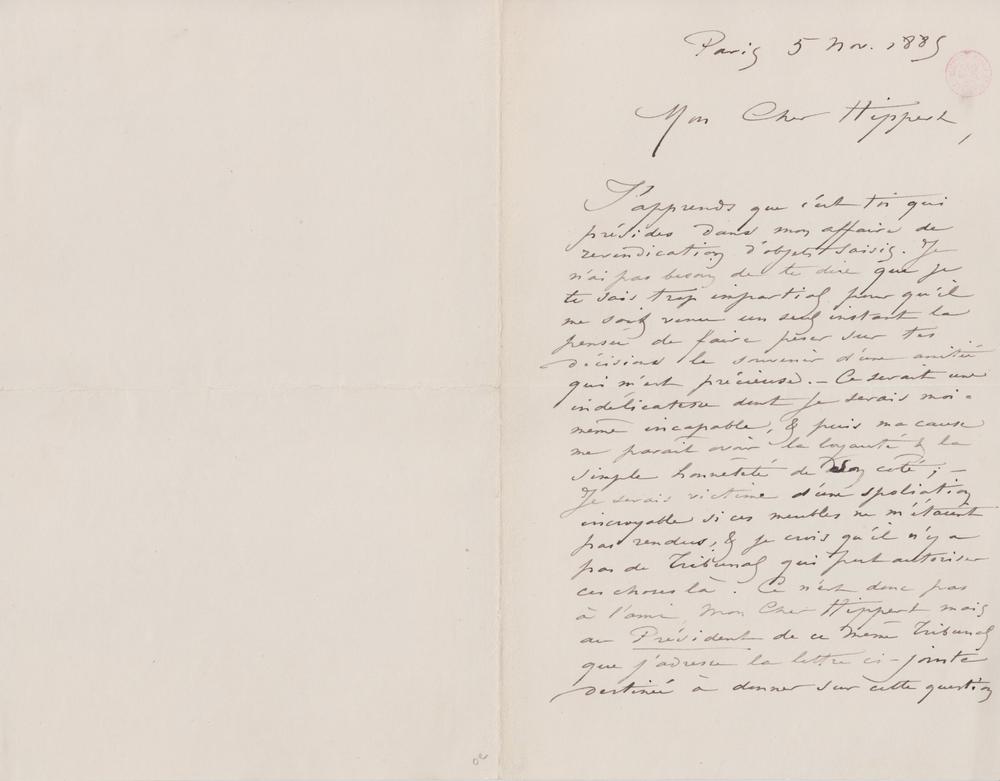 Paris 5 Nov. 1885
Mon Cher Hippert,
J'apprends que c'est toi qui
présides dans mon affaire de
revendication d'objets saisis. Je
n'ai pas besoin de te dire que je
te sais trop impartial pour qu'il
me soit venu un seul instant la
pensée de faire peser sur tes
décisions le souvenir d'une amitié
qui m'est précieuse. – Ce serait une
indélicatesse dont je serais moi-
même incapable, & puis ma cause
me parait avoir la loyauté & la
simple honnêteté de son coté ; –
Je serais victime d'une spoliation
incroyable si ces meubles ne m'étaient
pas rendus, & je crois qu'il n'y a
pas de Tribunal qui peut autoriser
ces choses là. Ce n'est donc pas
à l'ami, Mon Cher Hippert mais
au Président de ce même Tribunal
que j'adresse la lettre ci-jointe
destinée à donner sur cette question